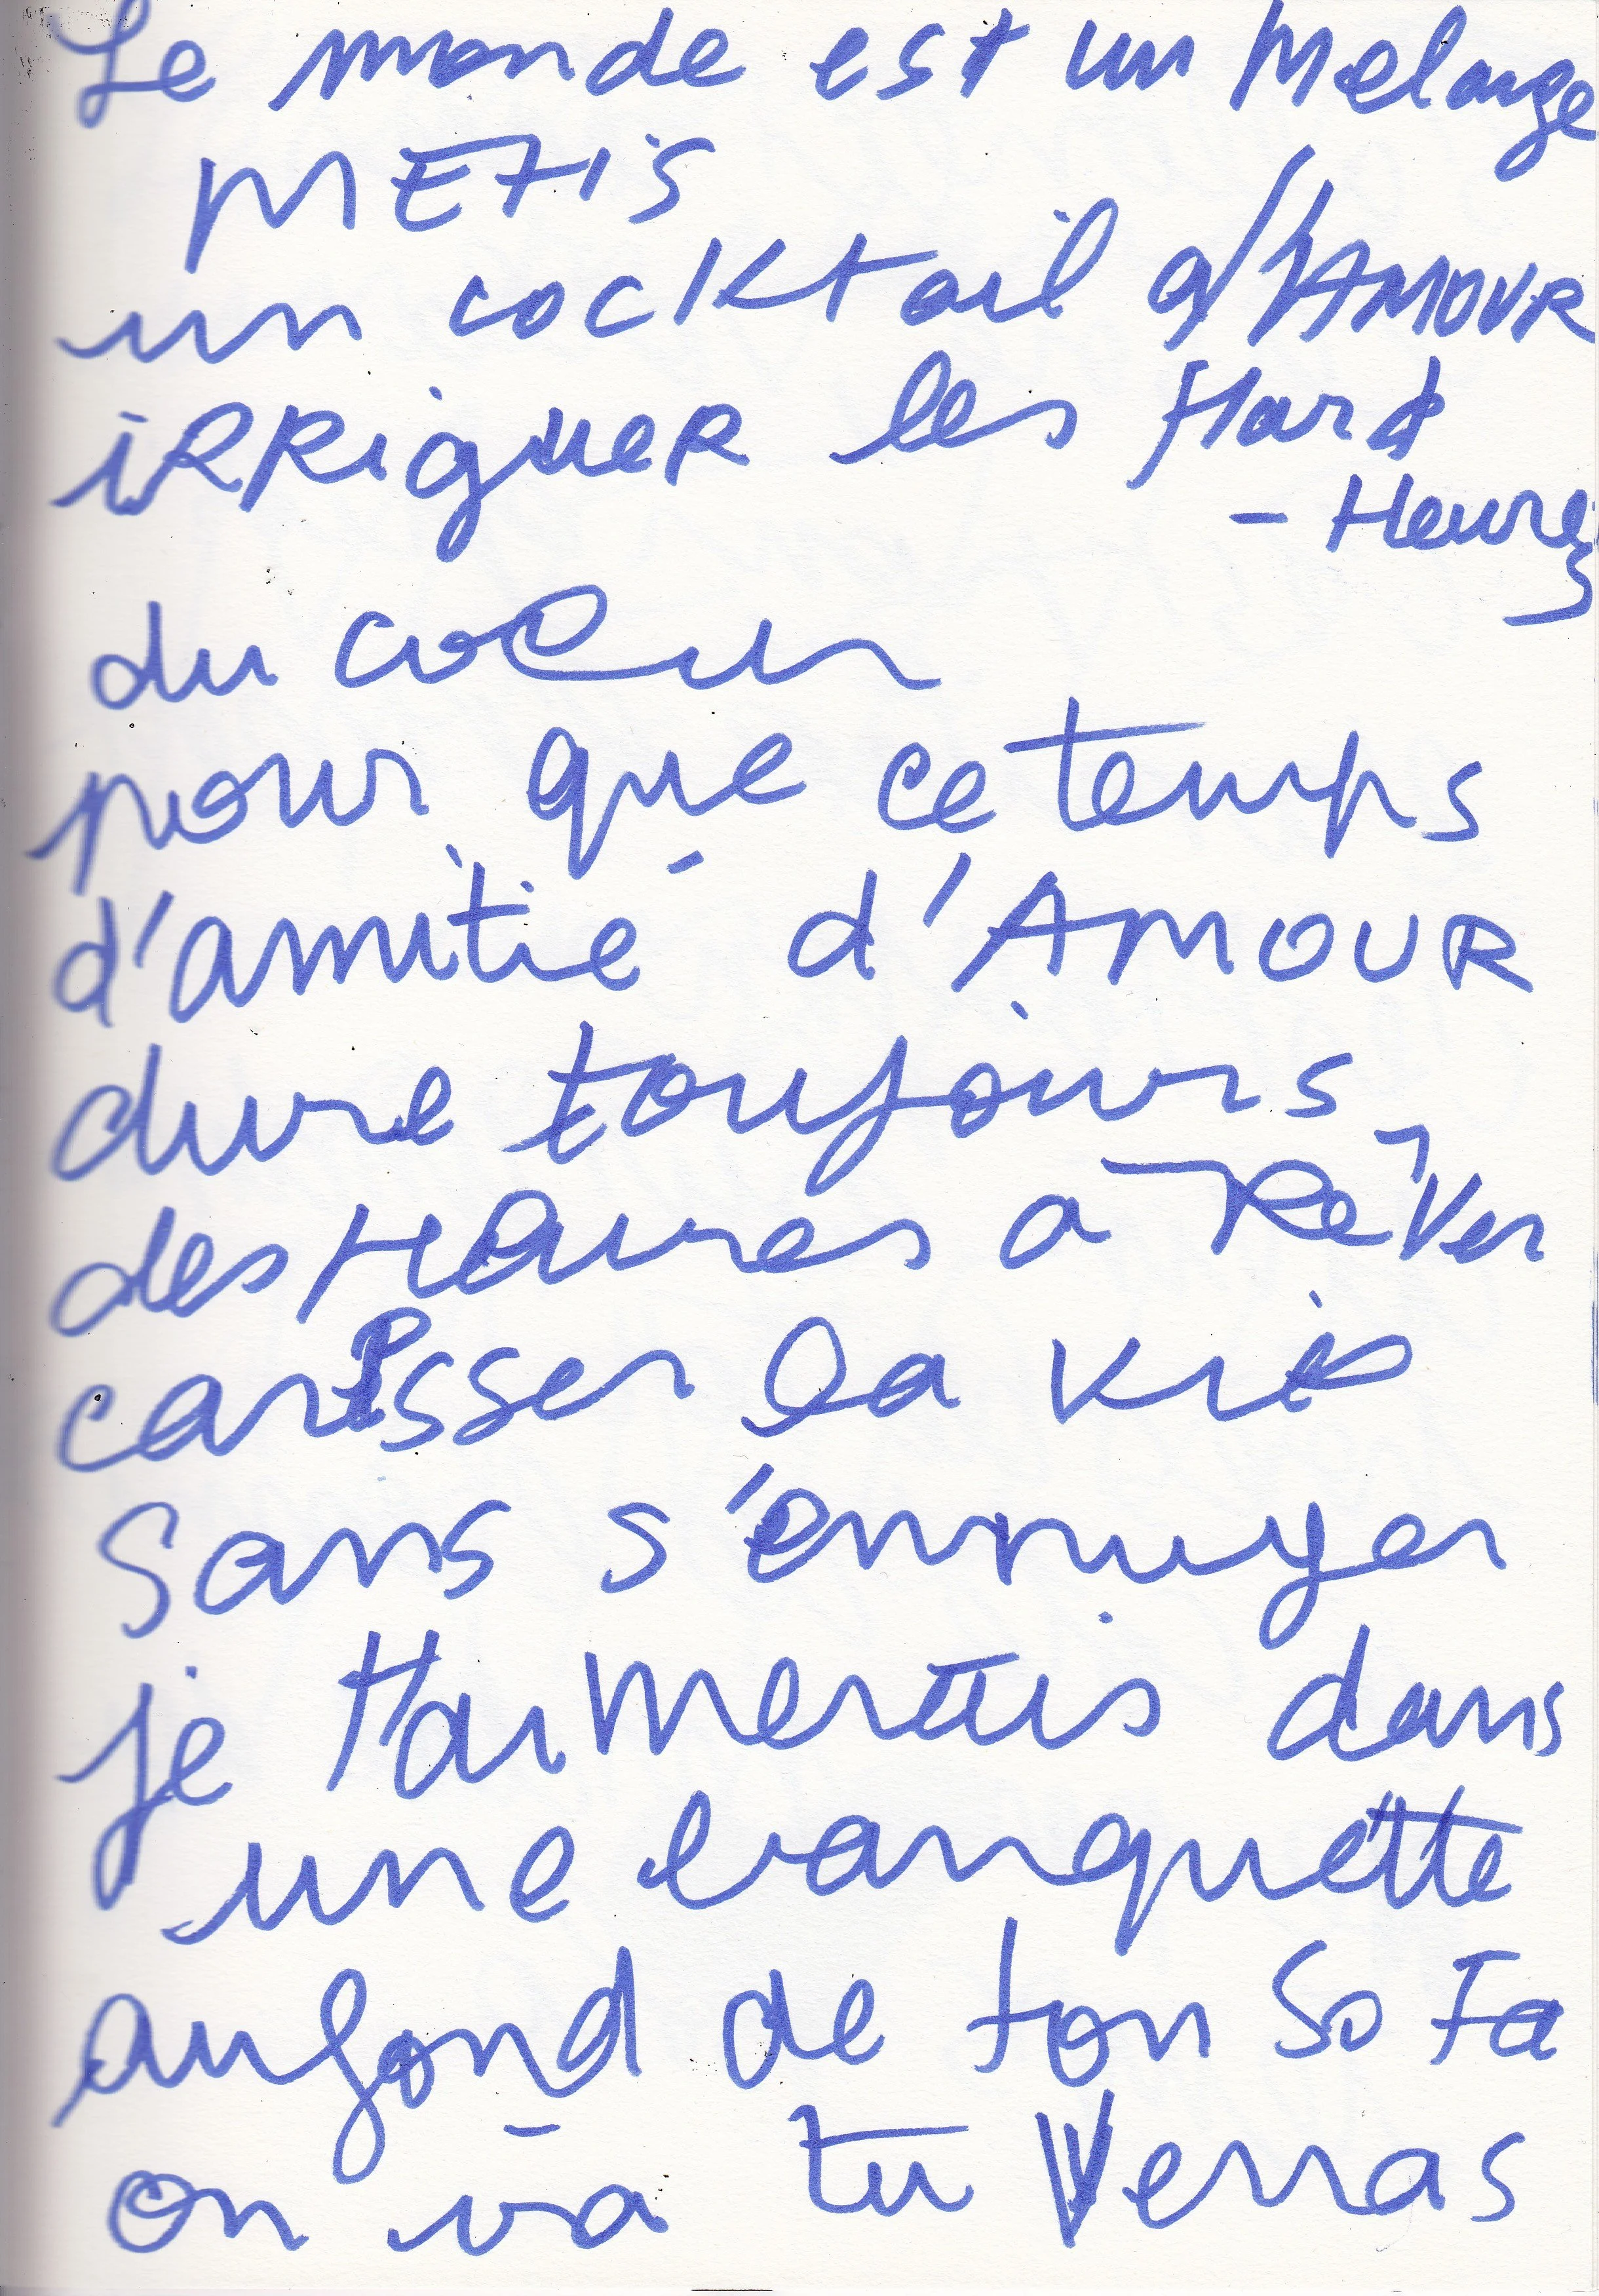 Le monde est un melange
METIS
un cocktail d'AMOUR
iRRiguER les Hard
- Heures
du coeur
pour que ce temps
d'amitié d'AMOUR
dure toujours
des Heures a Rêver
caresser la vie
Sans s'ennuyer
je t'aimerais dans
une banquette
au fond de ton SoFa
on va tu Verras